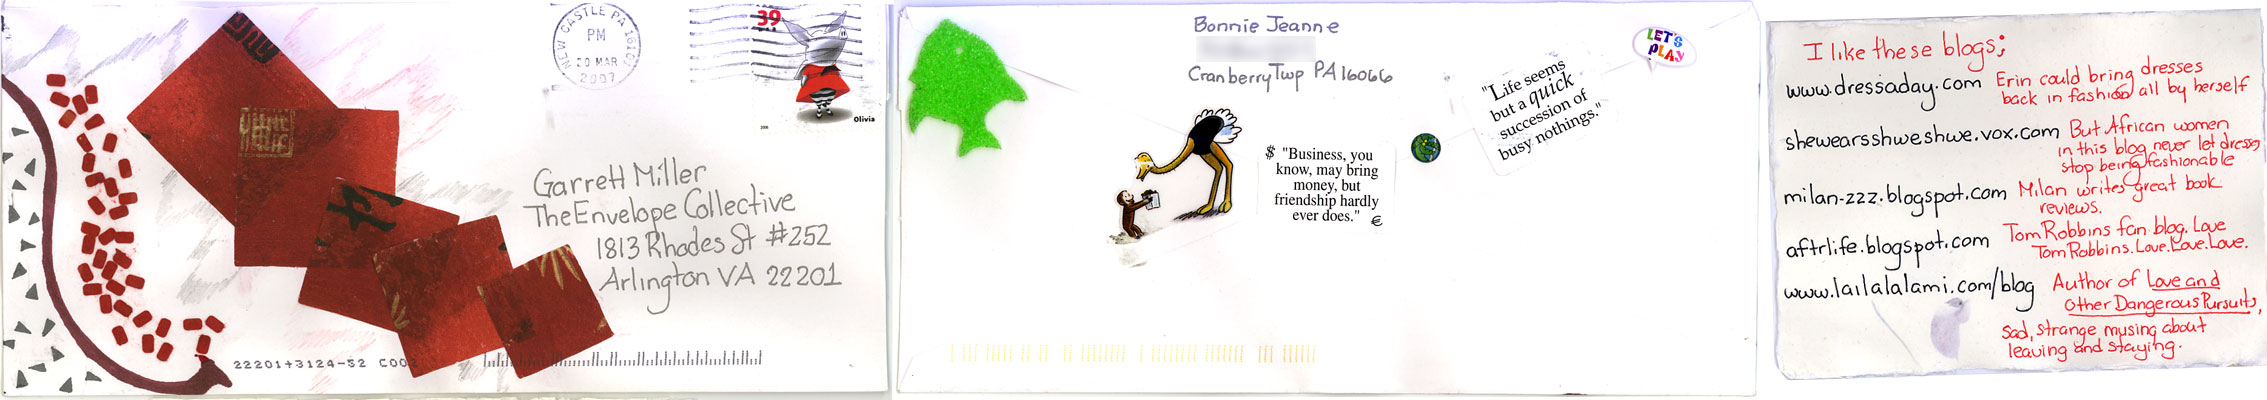 NEW CASTLE PA 16101
PM
20 MAR
2007
39
Olivia
Garrett Miller
The Envelope Collective
1813 Rhodes St #252
Arlington VA 22201
22201+3124-52 C002
Bonnie Jeanne
Cranberry Twp PA 16066
LET'S
PLAY
"Life seems
but a quick
succession of
busy nothings."
$ "Business, you
know, may bring
money, but
friendship hardly
ever does." €
I like these blogs;
www.dressaday.com Erin could bring dresses
back in fashion all by herself
shewearsshweshwe.vox.com But African women
in this blog never let dresses
stop being fashionable
milan-zzz.blogspot.com Milan writes great book
reviews.
aftrlife.blogspot.com Tom Robbins fan blog. Love
Tom Robbins. Love. Love. Love.
www.lailalalami.com/blog Author of Love and
Other Dangerous Pursuits,
Sad, strange musing about
leaving and staying.